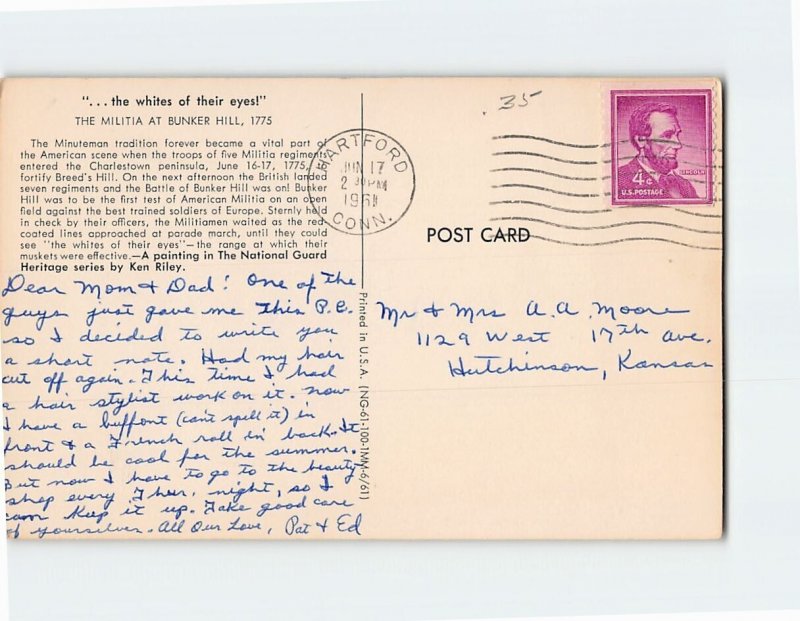 "... the whites of their eyes!"
THE MILITIA AT BUNKER HILL, 1775
The Minuteman tradition forever became a vital part of
the American scene when the troops of five Militia regiments
entered the Charlestown peninsula, June 16-17, 1775, to
fortify Breed's Hill. On the next afternoon the British landed
seven regiments and the Battle of Bunker Hill was on! Bunker
Hill was to be the first test of American Militia on an open
field against the best trained soldiers of Europe. Sternly held
in check by their officers, the Militiamen waited as the red-
coated lines approached at parade march, until they could
see "the whites of their eyes"—the range at which their
muskets were effective.—A painting in The National Guard
Heritage series by Ken Riley.
Dear Mom & Dad! One of the
guys just gave me this P.C.
so I decided to write you
a short note. Had my hair
cut off again. This time I had
a hair stylist work on it. now
I have a buffont (can't spell it) in
front & a French roll in back. It
should be cool for the summer.
But now I have to go to the beauty
shop every Thur. night, so I
can keep it up. Take good care
of yourselves. All Our Love, Pat & Ed
Printed in U.S.A. (NG-61-100-1MM-6/61)
HARTFORD
JUN 17
2 30 PM
1961
CONN.
.35
LINCOLN
4¢
U.S. POSTAGE
POST CARD
Mr & Mrs A. A. Moore
1129 West 17th Ave.
Hutchinson, Kansas